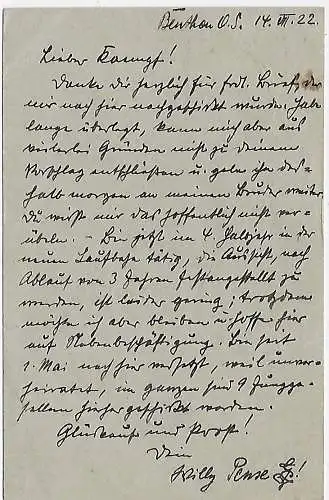 Beuthen O.S. 14. VII. 22.
Lieber Kaempf!
Danke dir herzlich für frdl. Brief, der
mir nach hier nachgeschickt wurde. Habe
lange überlegt, kann mich aber aus
vielerlei Gründen nicht zu deinem
Vorschlag entschließen u. gebe ihn des-
halb morgen an meinen Bruder weiter.
Du wirst mir das hoffentlich nicht ver-
übeln. – Bin jetzt im 4. Halbjahr in der
neuen Laufbahn tätig, die Aussicht, nach
Ablauf von 3 Jahren festangestellt zu
werden, ist leider gering; trotzdem
möchte ich aber bleiben u. hoffe hier
auf Nebenbeschäftigung. Bin seit
1. Mai nach hier versetzt, weil unver-
heiratet, im ganzen sind 9 Jungge-
sellen hierher geschickt worden.
Glückauf und Prost!
Dein
Willy